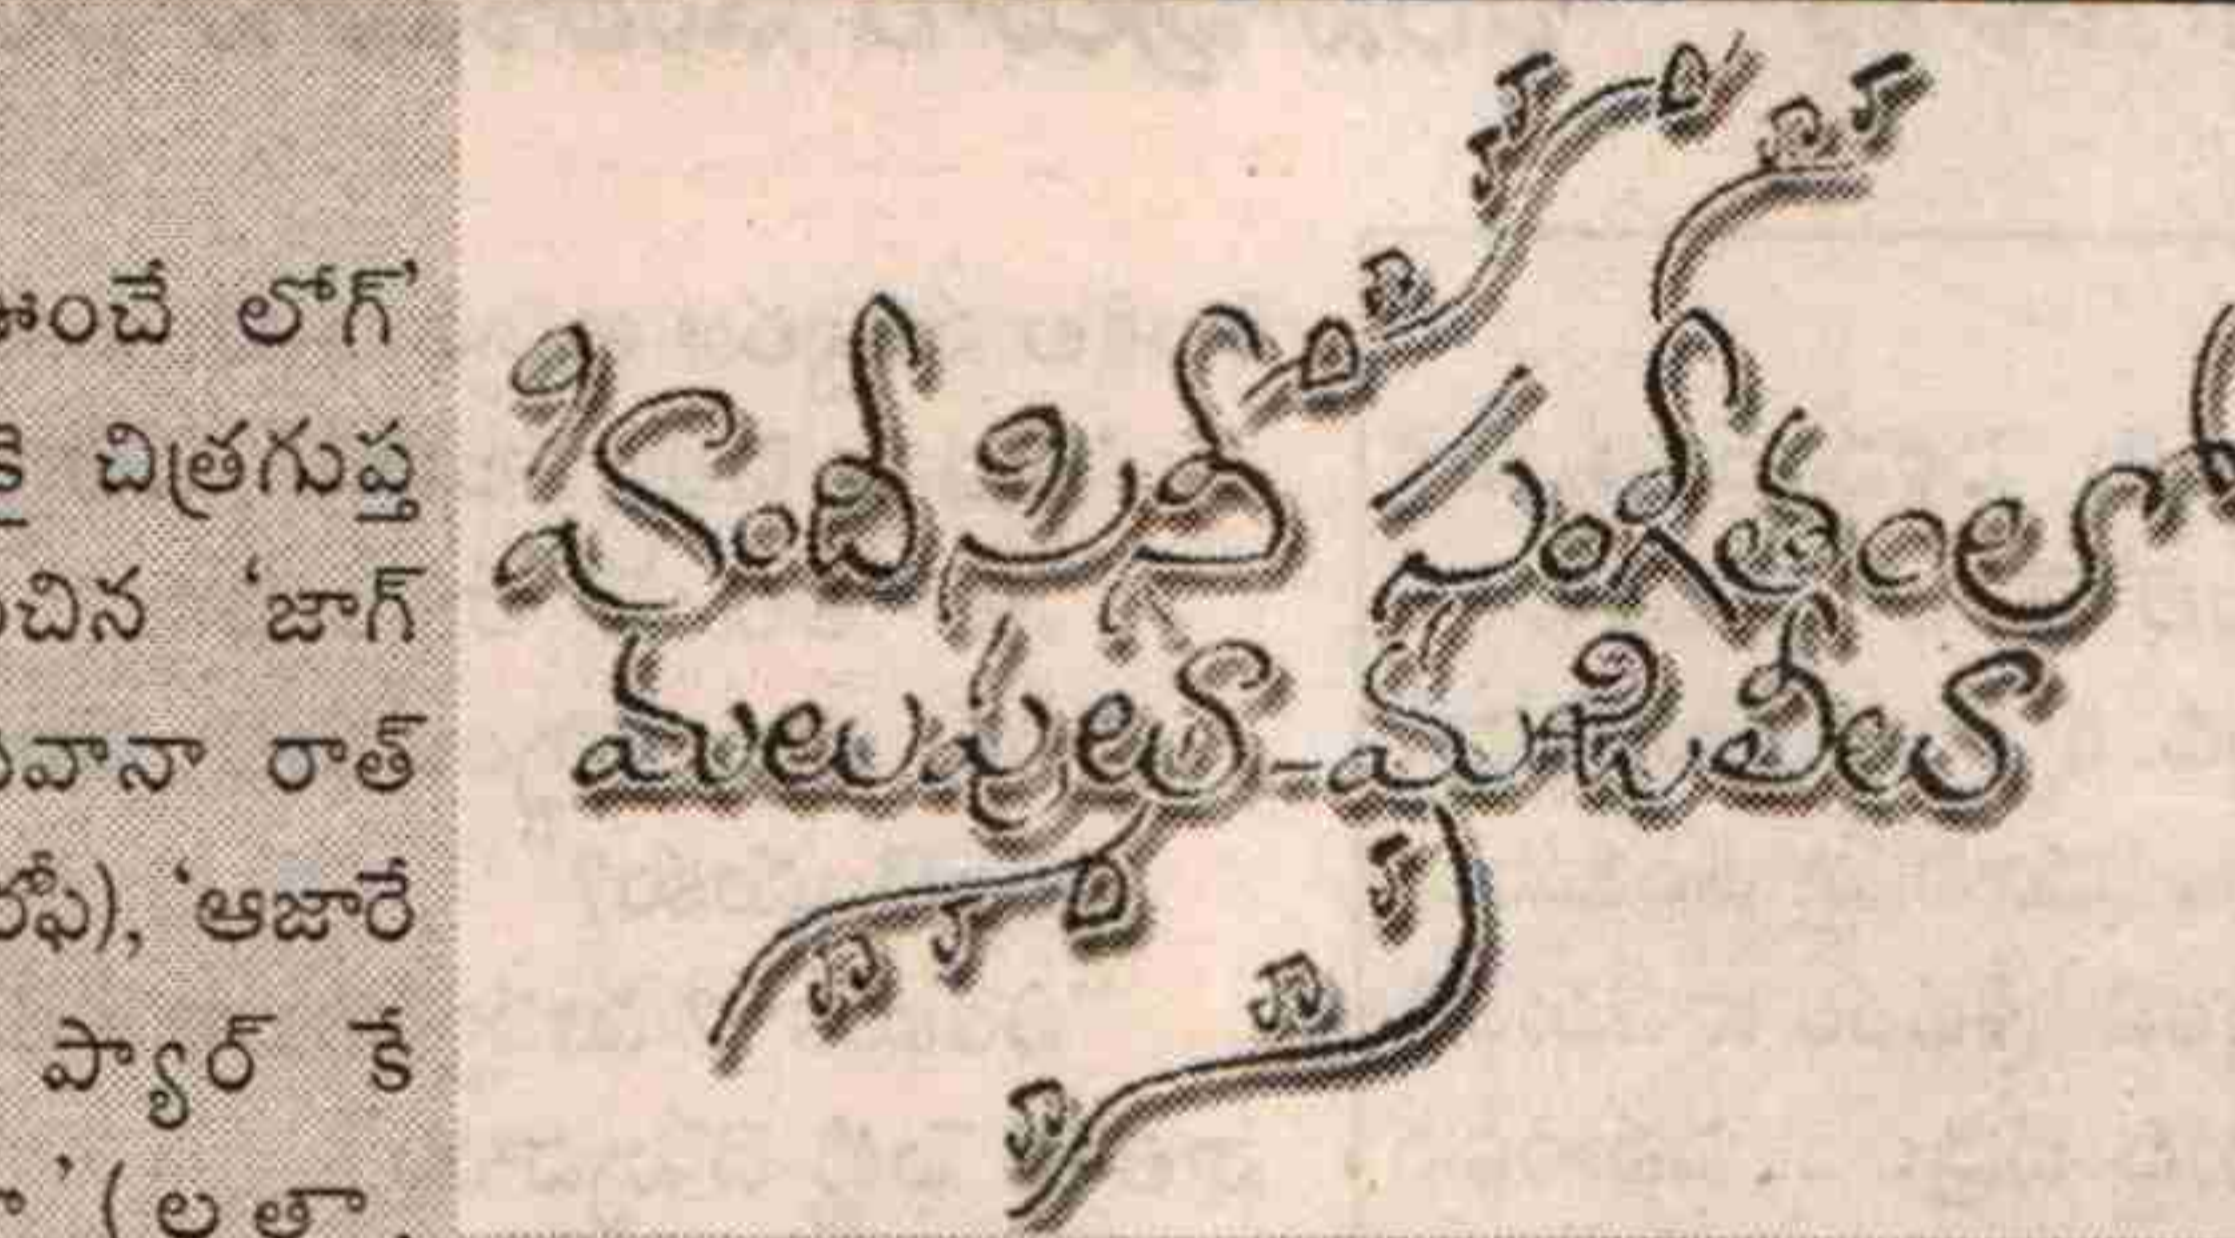 లోగ్'
చిత్రగుప్త
'జాగ్
రాత్
'ఆజారే
ప్యార్ కే
(లతా,
హిందీ సినీ సంగీతంలో
మలుపులూ - మజిలీలూ